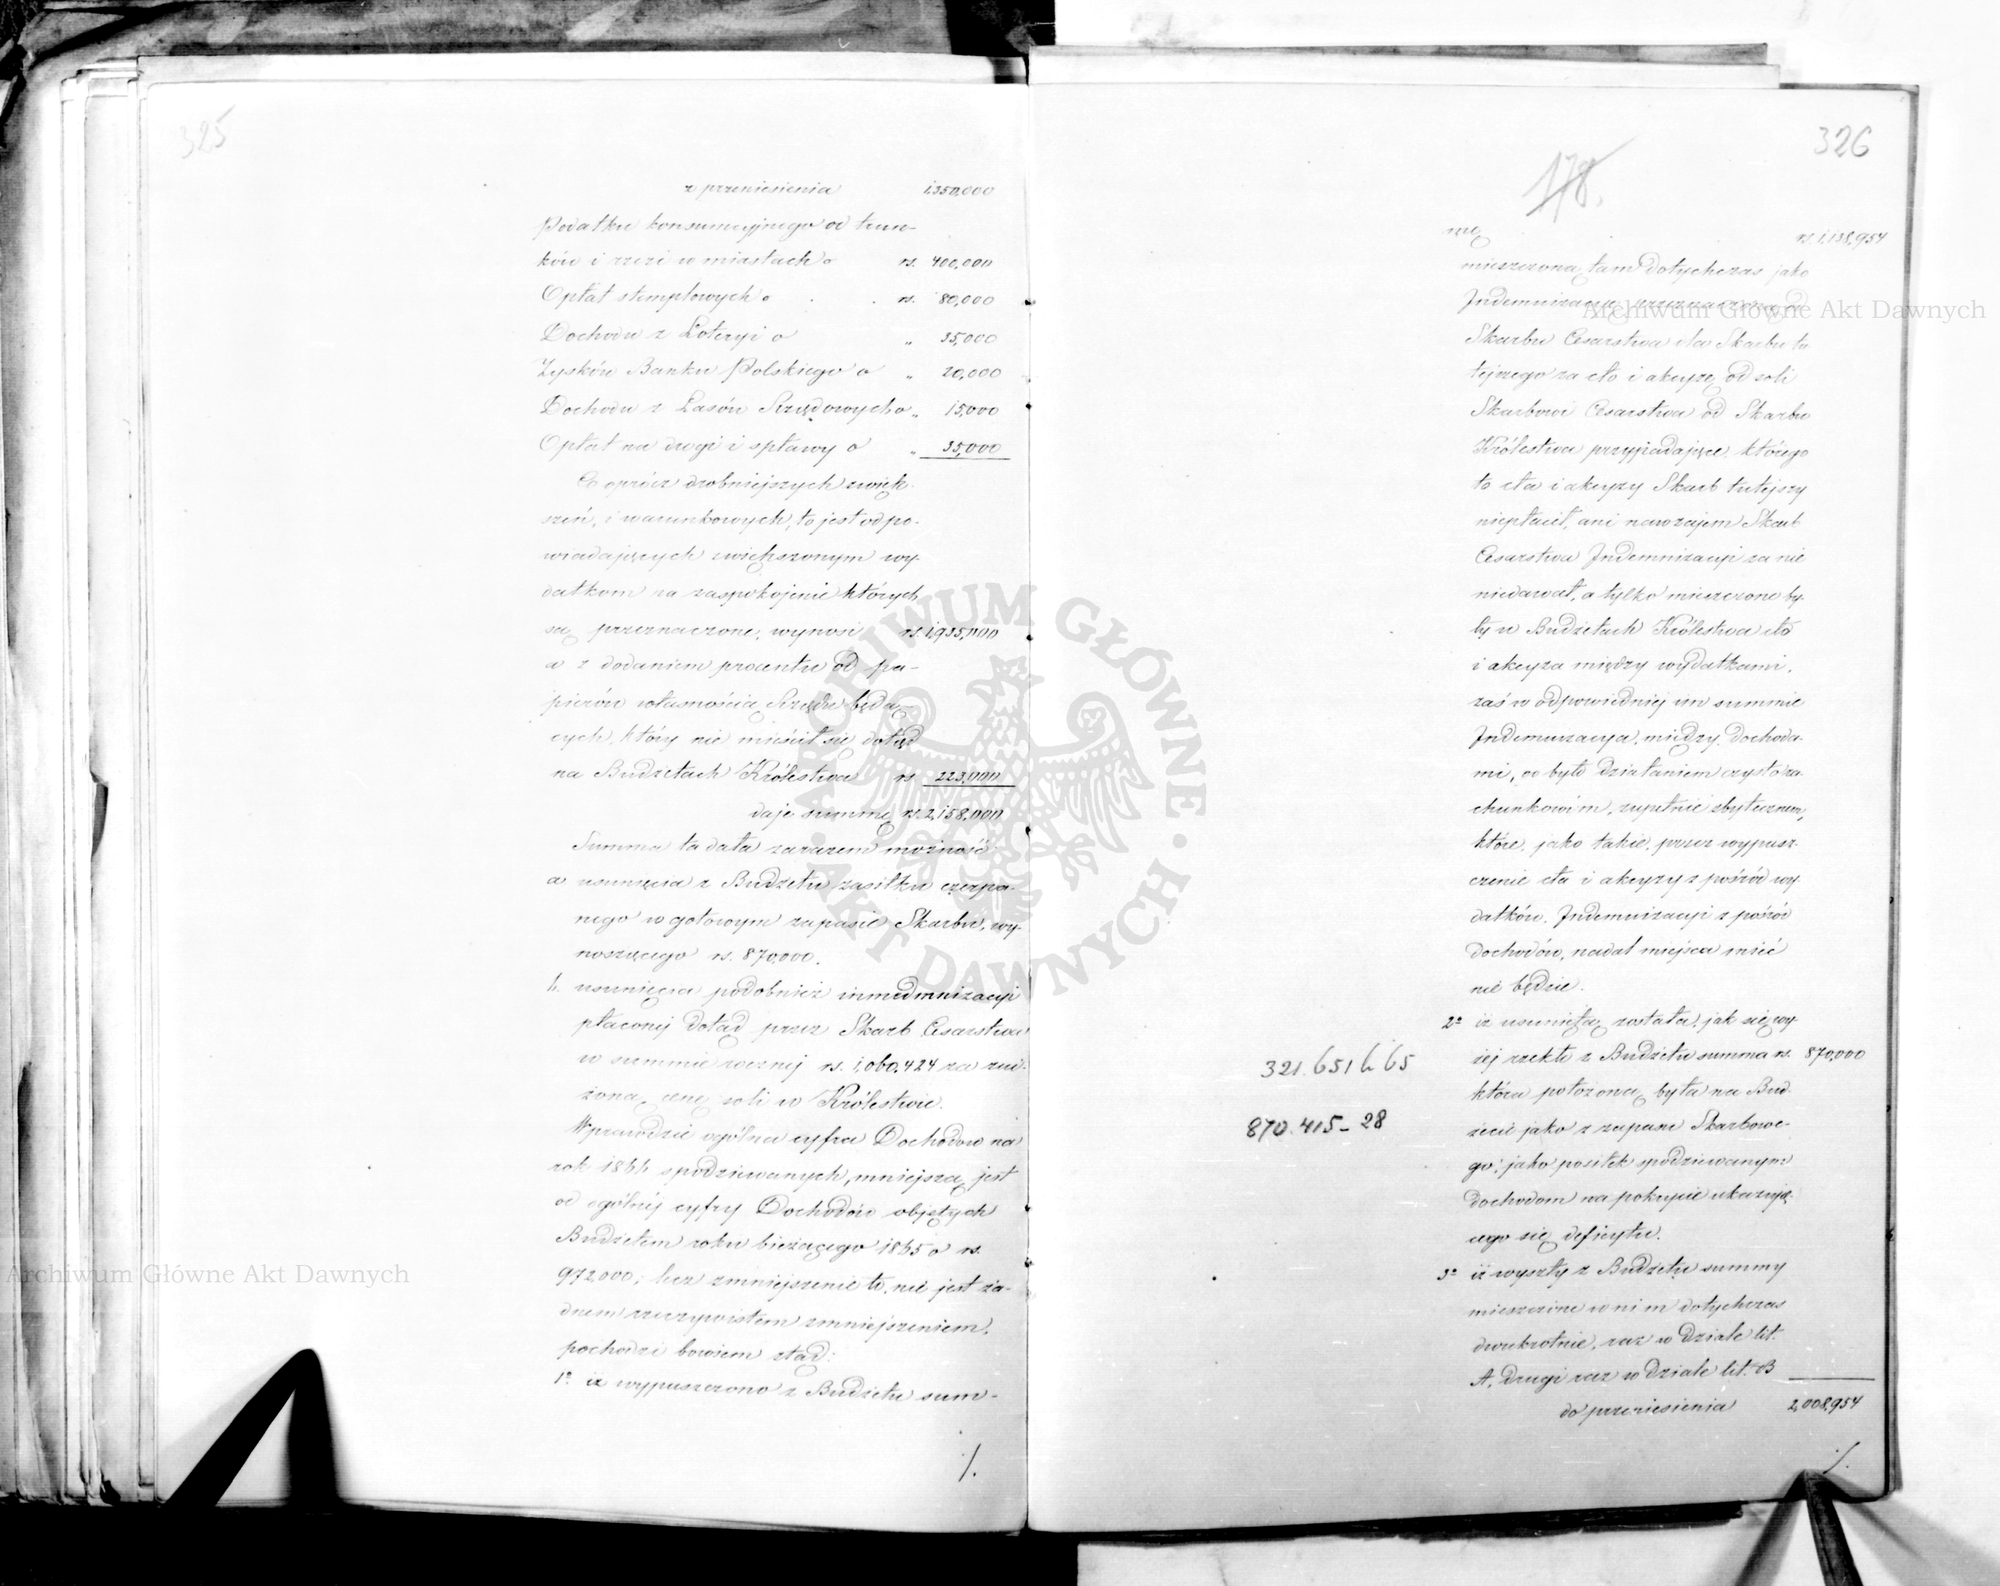 325
z przeniesienia 1,350,000
Podatku konsumcyjnego od trun-
ków i rzezi w miastach o rs. 400,000
Opłat stemplowych o . . rs. 80,000
Dochodu z Loteryi o „ 35,000
Zysków Banku Polskiego o „ 20,000
Dochodu z Lasów Rządowych o „ 15,000
Opłat na drogi i spławy o „ 35,000
Co oprócz drobniejszych zwięk-
szeń, i warunkowych, to jest odpo-
wiadających zwiększonym wy-
datkom na zaspokojenie których
są przeznaczone, wynosi rs. 1,935,000
a z dodaniem procentu od pa-
pierów własnością Rządu będą-
cych, który nie mieścił się dotąd
na Budżetach Królestwa rs. 223,000
daje summę rs. 2,158,000
Summa ta dała zarazem możność:
a usunięcia z Budżetu zasiłku czerpa-
nego w gotowym zapasie Skarbu, wy-
noszącego rs. 870,000.
b. usunięcia podobnież inmedmnizacyi
płaconej dotąd przez Skarb Cesarstwa
w summie rocznej rs. 1,060,424 za zni-
żoną cenę soli w Królestwie.
Wprawdzie ogólna cyfra Dochodów na
rok 1866 spodziewanych, mniejszą jest
od ogólnej cyfry Dochodów objętych
Budżetem roku bieżącego 1865 o rs.
972,000; lecz zmniejszenie to, nie jest ża-
dnem rzeczywistem zmniejszeniem,
pochodzi bowiem ztąd:
1° iż wypuszczono z Budżetu sum-
./.
326
178.
mę rs. 1,138,954
mieszczoną tam dotychczas jako
Indemnizacya przeznaczona od
Skarbu Cesarstwa dla Skarbu tu
tejszego za cło i akcyzę od soli
Skarbowi Cesarstwa od Skarbu
Królestwa przypadające, którego
to cła i akcyzy Skarb tutejszy
niepłacił, ani nawzajem Skarb
Cesarstwa Indemnizacyi za nie
niedawał, a tylko mieszczone by-
ły w Budżetach Królestwa cło
i akcyza między wydatkami,
zaś w odpowiedniej im summie
Indemnizacya, między dochoda-
mi, co było działaniem czysto ra-
chunkowém, zupełnie zbytecznem,
które, jako takie, przez wypusz-
czenie cła i akcyzy z pośród wy-
datków, Indemnizacyi z pośród
dochodów, nadal miejsca mieć
nie będzie.
2° iż usuniętą została, jak się wy-
żej rzekło z Budżetu summa rs. 870,000
która położoną była na Bud-
żecie jako z zapasu Skarbowe-
go; jako posiłek spodziewanym
dochodom na pokrycie ukazują-
cego się deficytu.
321.651 h 65
870.415 – 28
3° iż wyszły z Budżetu summy
mieszczone w nim dotychczas
dwukrotnie, raz w Dziale lit.
A, drugi raz w Dziale lit. B
do przeniesienia 2,008,954
./.
Archiwum Główne Akt Dawnych
Archiwum Główne Akt Dawnych
ARCHIWUM GŁÓWNE • AKT DAWNYCH •